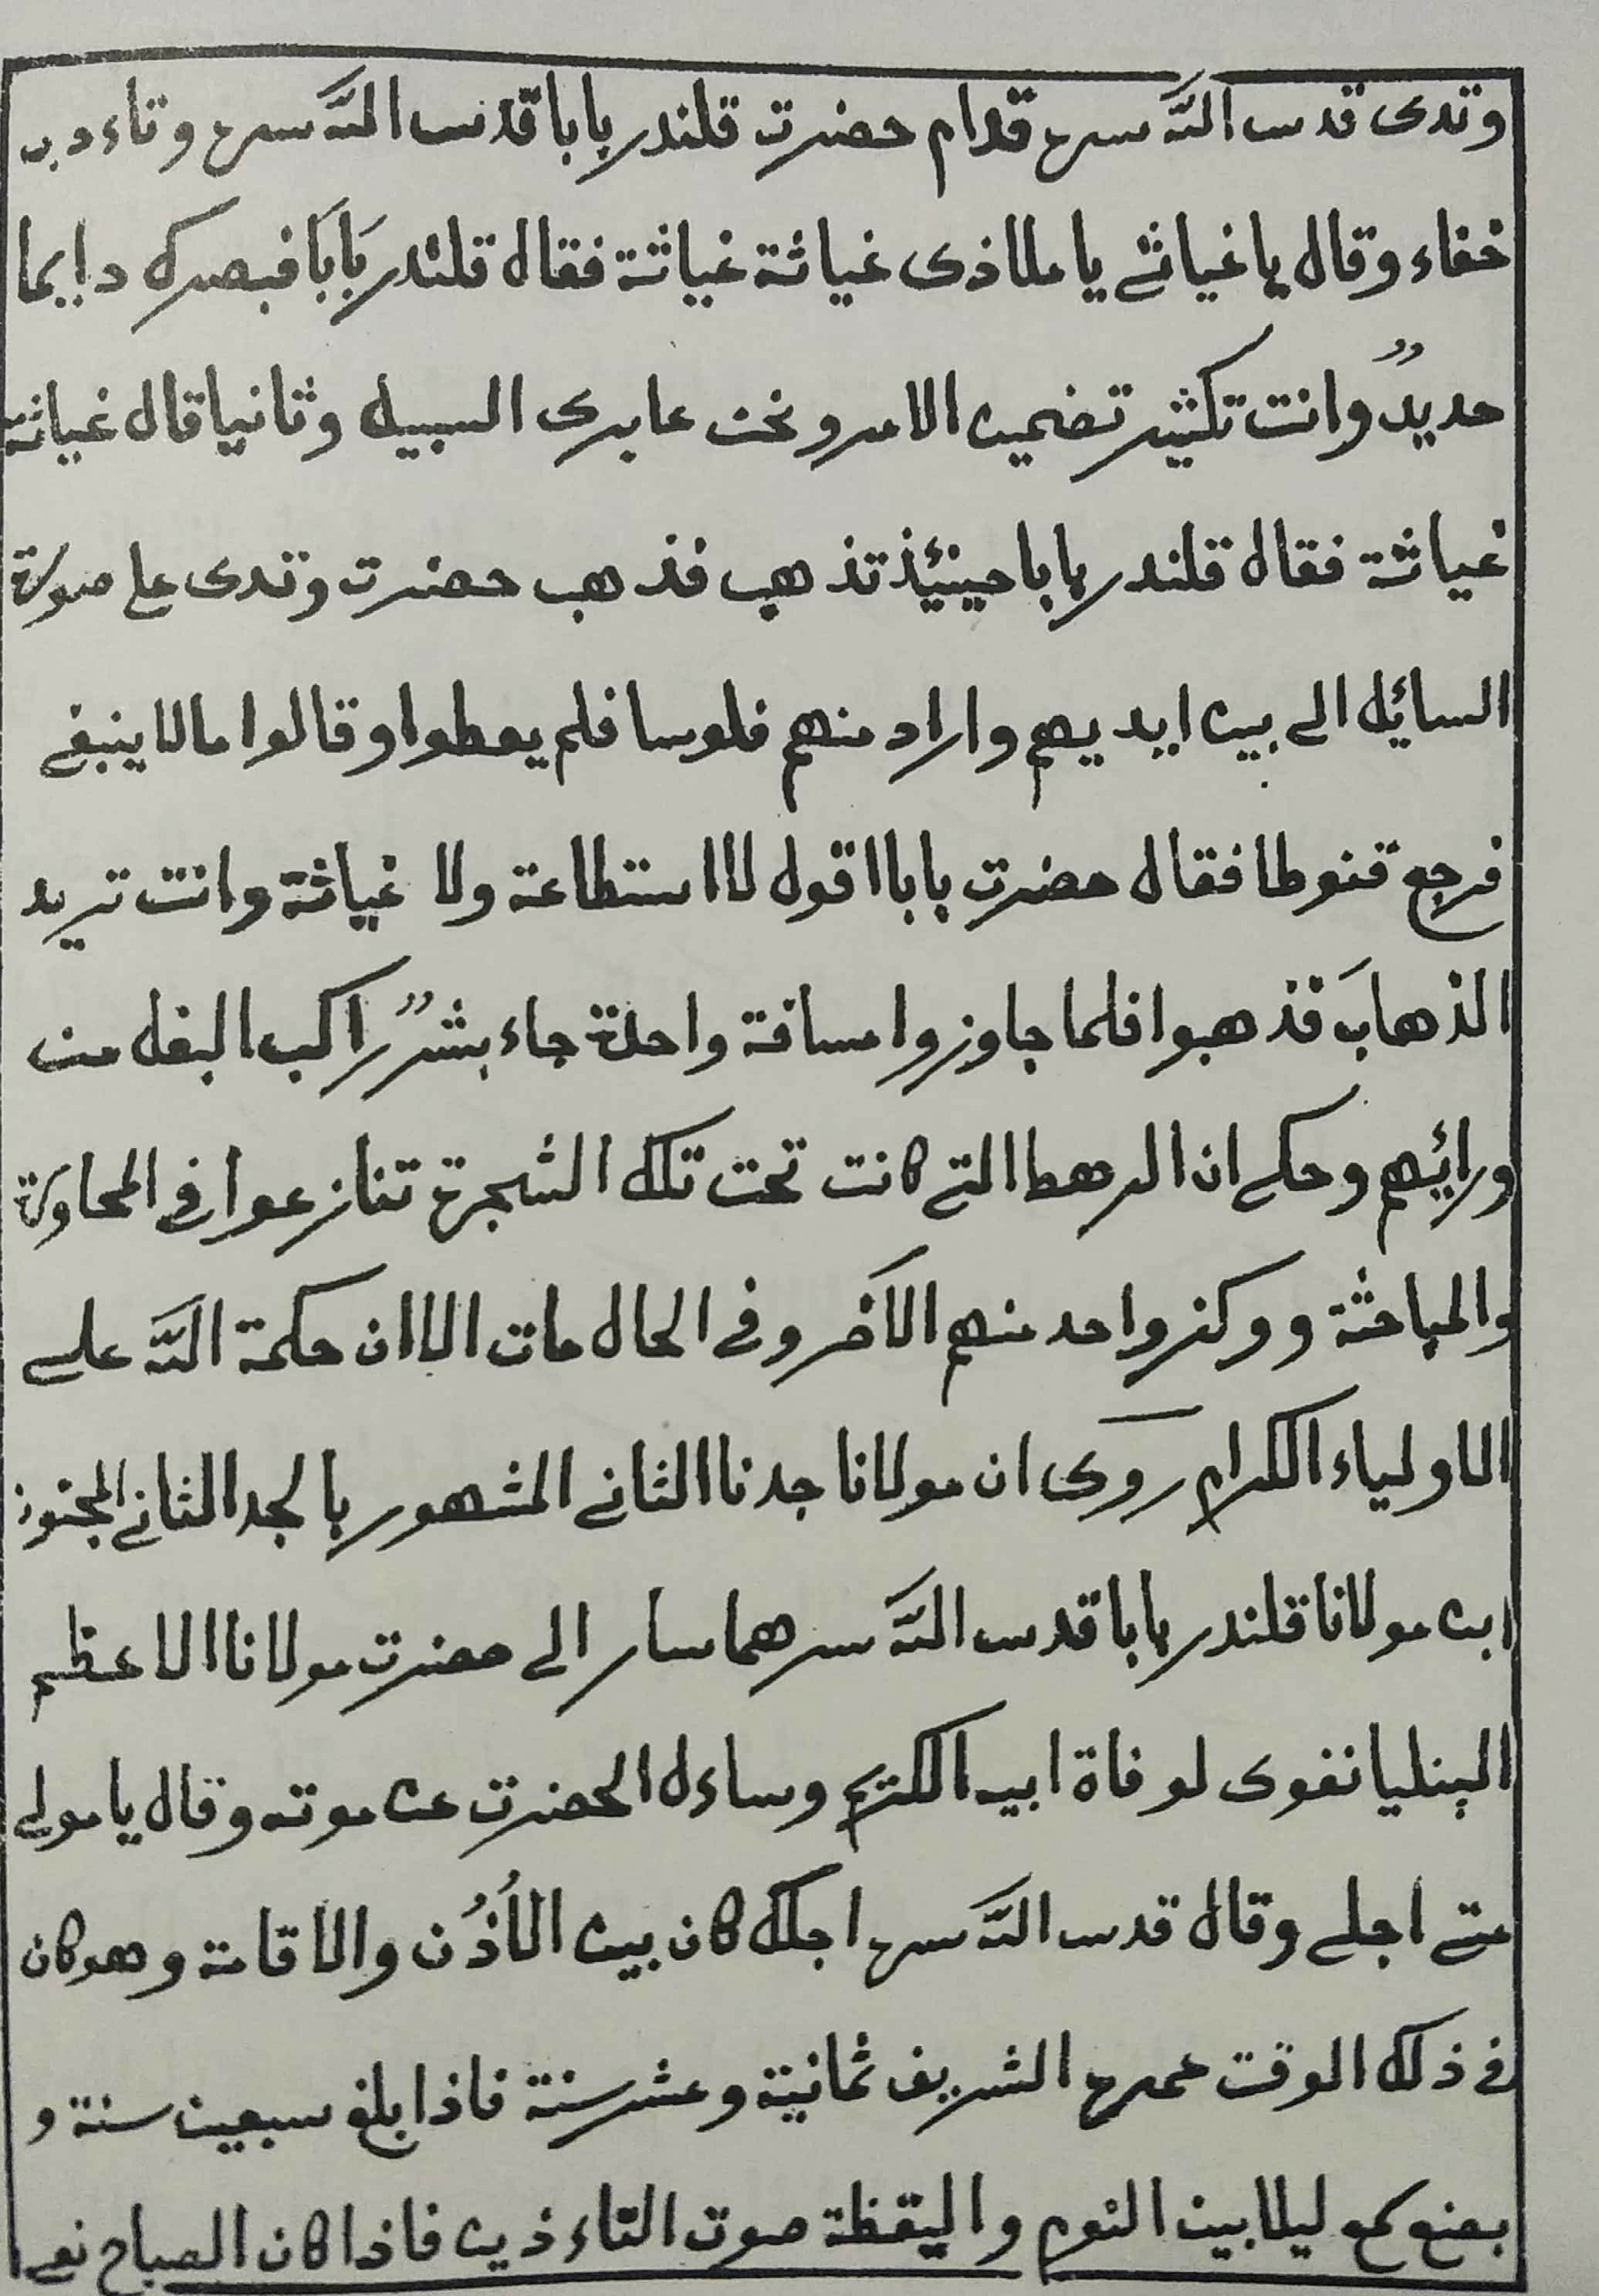 وتدى قدس الله سره قدام حضرت قلندر بابا قدس الله سره وتاءدب
خفاء وقال يا غياثى يا ملاذى غياثة غياثة فقال قلندر بَابَا فبصرك دايما
حديدٌ وانت تكثير تضمين الامر ونحن عابرى السبيل وثانيا قال غياثة
غياثة فقال قلندر بابا حينئذ تذهب فذهب حضرت وتدى على صورة
السايل الى بين ايديهم واراد منهم فلوسا فلم يعطوا وقالوا مالا ينبغى
فرجع قنوطا فقال حضرت بابا اقول لا استطاعة ولا غياثة وانت تريد
الذهابَ فذهبوا فلما جاوزوا مسافة واحدة جاء بشرٌ راكب البغل من
ورائهم وحكى ان الرهط التى كانت تحت تلك الشجرة تنازعوا فى المحاورة
والمباحثة ووكز واحد منهم الآخر وفى الحال مات الا ان حكمة الله على
الاولياء الكرام روى ان مولانا جدنا الثانى المشهور بالجد الثانى المجنون
ابن مولانا قلندر بابا قدس الله سرهما سار الى حضرت مولانا الاعظم
الپنليانفوى لوفاة ابيه الكريم وساءل الحضرت عن موته وقال يا مولى
متى اجلى وقال قدس الله سره اجلك كان بين الأذُن والاقامة وهو كان
فى ذلك الوقت عمره الشريف ثمانية وعشر سنة فاذا بلغ سبعين سنة و
بضع كمع ليلا بين النوم واليقظة صوت التاءذين فاذا كان الصباح نعى